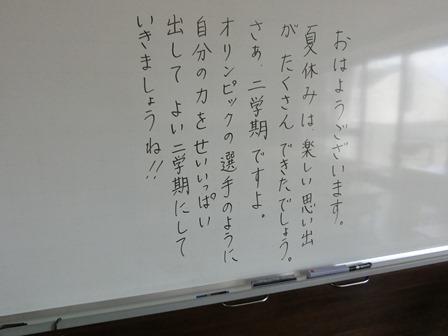 おはようございます。
夏休みは、楽しい思い出
が たくさん できたでしょう。
さぁ、二学期ですよ。
オリンピックの選手のように
自分の力をせいいっぱい
出して よい二学期にして
いきましょうね!!